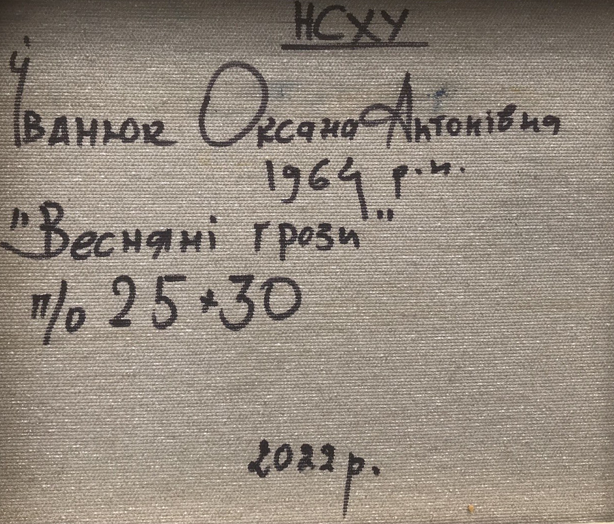 НСХУ
Іванюк Оксана Антонівна
1964 р.н.
"Весняні грози"
п/о 25*30
2022 р.